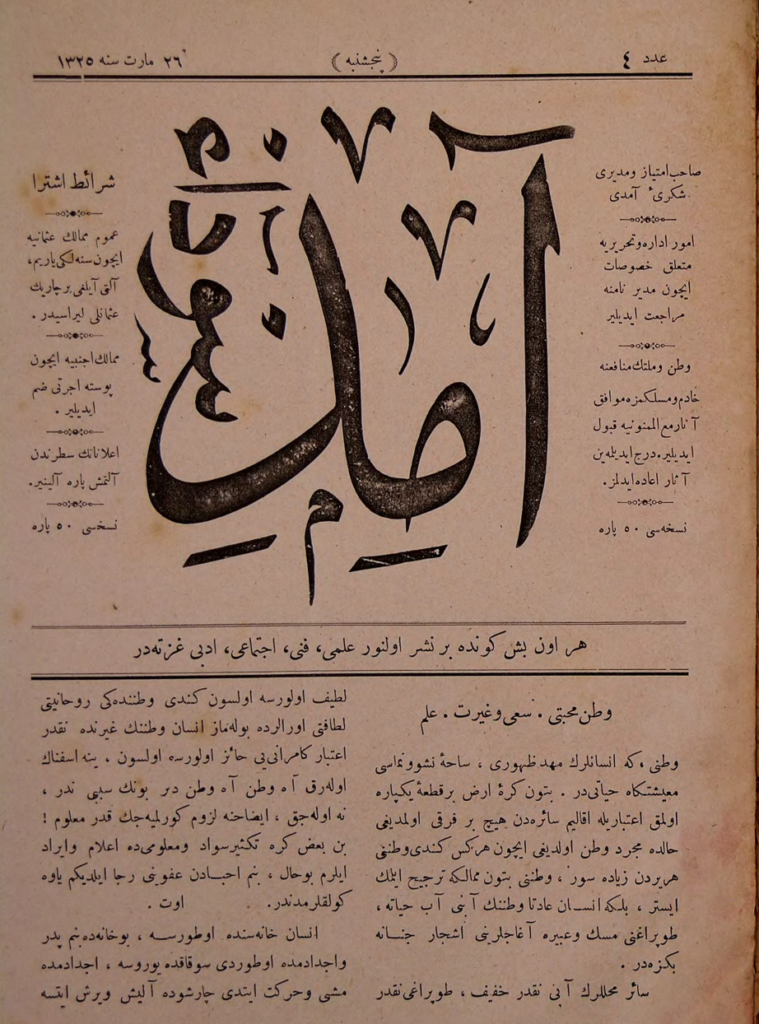 عدد ٤
(پنجشنبه)
٢٦ مارت سنه ١٣٢٥
صاحب امتياز ومديرى
شكرىء آمدى
امور اداره وتحريريه
متعلق خصوصات
ايچون مدير نامنه
مراجعت ايديلير
وطن وملتك منافعنه
خادم ومسلكمزه موافق
آثار مع الممنونيه قبول
ايديلير. درج ايديله‌ين
آثار اعاده ايدلمز.
نسخه‌سى ٥٠ پاره
شرائط اشترا
عموم ممالك عثمانيه
ايچون سنه‌لكى ياريم،
آلتى آيلغى بر چاريك
عثمانلى ليراسيدر.
ممالك اجنبيه ايچون
پوسته اجرتى ضم
ايديلير.
اعلاناتك سطرندن
آلتمش پاره آلينير.
نسخسى ٥٠ پاره
هر اون بش كونده بر نشر اولنور علمى، فنى، اجتماعى، ادبى غزته‌در
وطن محبتى . سعى وغيرت . علم
وطنى، كه انسانلرك مهد ظهورى ، ساحۀ نشوونماسى
معيشتكاه حياتى‌در . بتون كرۀ ارض بر قطعۀ يكپاره
اولمق اعتباريله اقاليم سائره‌دن هيچ بر فرقى اولمديغى
حالده مجرد وطن اولديغى ايچون هركس كندى وطننى
هر يردن زياده سور ، وطننى بتون ممالكه ترجيح ايتمك
ايستر ، بلكه انسان عادتا وطننك آبنى آب حياته ،
طوپراغنى مسك وعبيره آغاجلرينى اشجار جنانه
بكزه‌در .
سائر محللرك آبى نقدر خفيف ، طوپراغى نقدر
لطيف اولورسه اولسون كندى وطننده‌كى روحانيتى
لطافتى اورالرده بوله‌ماز انسان وطننك غيرنده نقدر
اعتبار كامرانى‌يى حائز اولورسه اولسون ، ينه اسفناك
اوله‌رق آه وطن آه وطن دير بونك سببى ندر ،
نه اوله‌جق ، ايضاحنه لزوم كورلميه‌جك قدر معلوم !
بن بعض كره تكثير سواد ومعلومى‌ده اعلام وايراد
ايلرم بوحال ، بنم احبادن عفوينى رجا ايلديكم ياوه
كولقلرمدندر. اوت .
انسان خانه‌سنده اوطورسه ، بوخانه‌ده بنم پدر
واجدادمده اوطوردى سوقاقده يوروسه ، اجدادمده
مشى وحركت ايتدى چارشوده آليش ويرش ايتسه